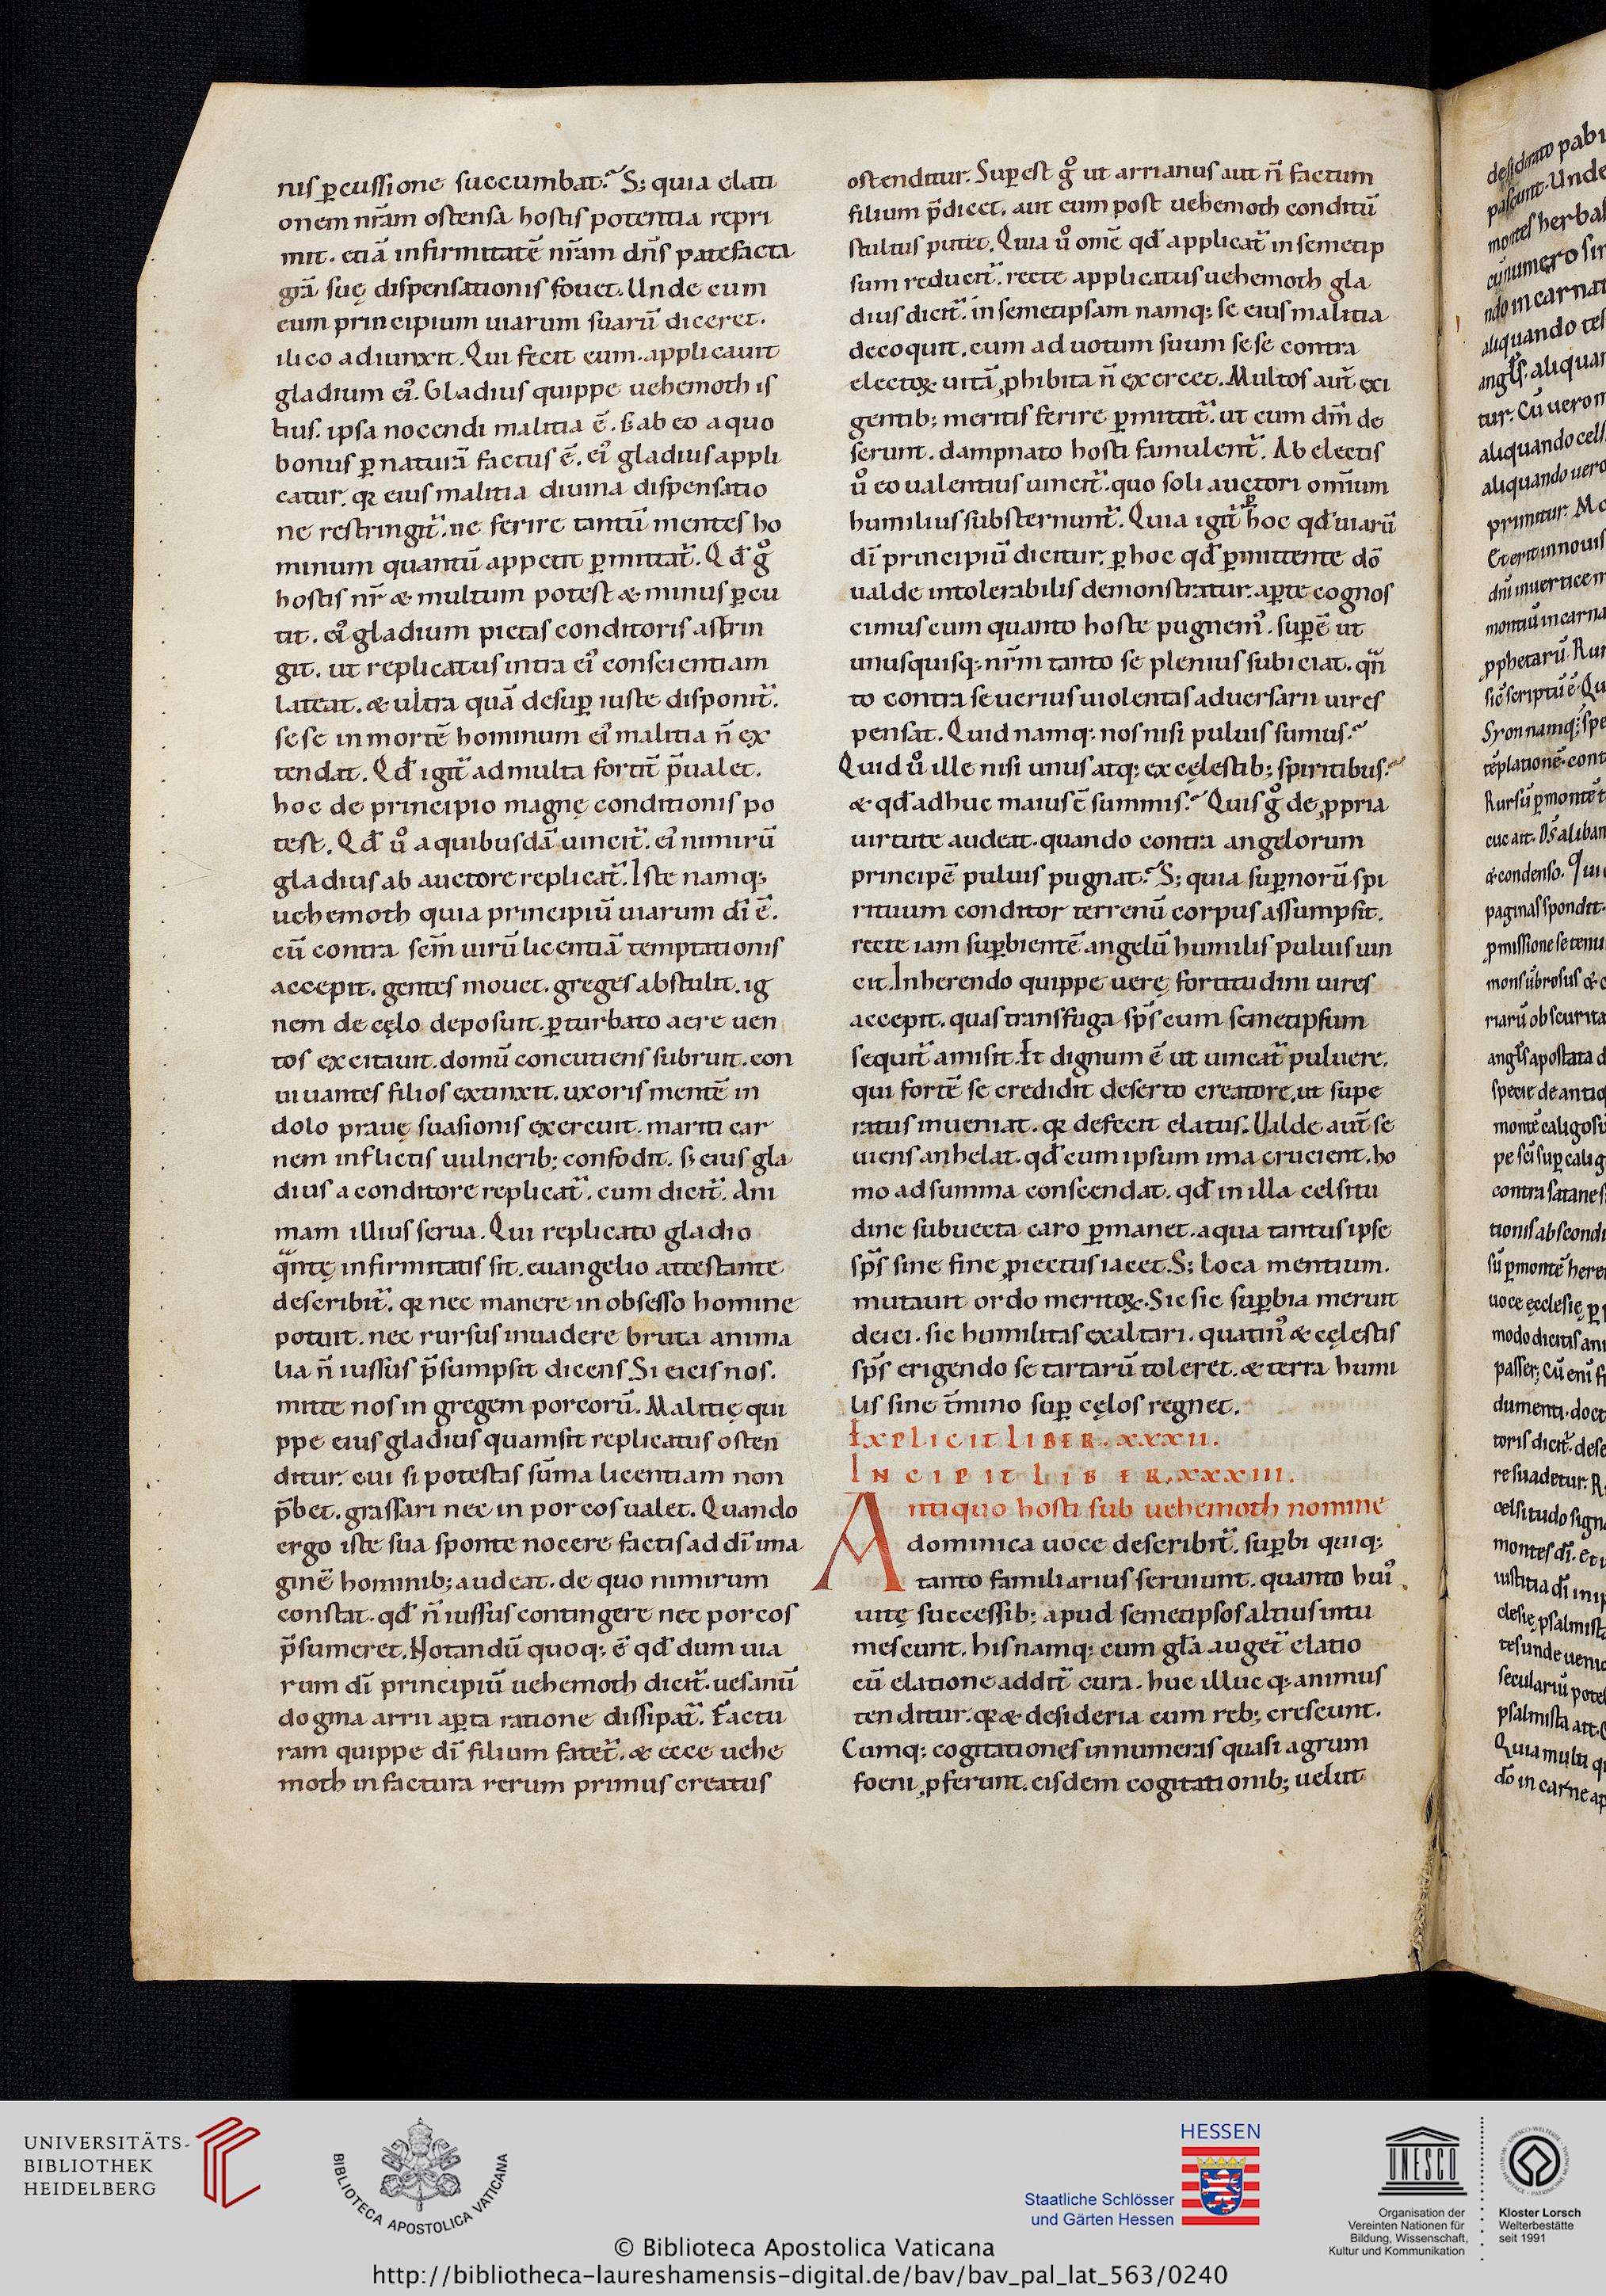 nis p̲cussione succumbat. S; quia elati
onem nr̄am ostensa hostis potentia repri
mit. etiā infirmitatē nr̄am dn̄s patefacta
gr̄a suę dispensationis fouet. Unde cum
eum principium uiarum suarū diceret.
ilico adiunxit. Qui fecit eum. applicauit
gladium ei᾿. Gladius quippe uehemoth is
tius. ipsa nocendi malitia ē. s; ab eo a quo
bonus p̲ naturā factus ē. ei᾿ gladius appli
catur. qꝛ eius malitia diuina dispensatio
ne restringit᷑. ne ferire tantū mentes ho
minum quantū appetit p̲mittat᷑. Qđ gͦ
hostis nr̄ & multum potest & minus p̲cu
tit. ei᾿ gladium pietas conditoris astrin
git. ut replicatus intra ei᾿ conscientiam
lateat. & ultra quā desup̲ iuste disponit᷑.
sese in mortē hominum ei᾿ malitia n̄ ex
tendat. Qđ igit᷑ ad multa fortit᷑ p̄ualet.
hoc de principio magnę conditionis po
test. Qđ uͦ a quibusdā uincit᷑. ei᾿ nimirū
gladius ab auctore replicat᷑. Iste namq;
uehemoth quia principiū uiarum dī ē.
cū contra sc̄m uirū licentiā temptationis
accepit. gentes mouet. greges abstulit. ig
nem de cęlo deposuit. p̲turbato aere uen
tos excitauit. domū concutiens subruit. con
uiuantes filios extinxit. uxoris mentē in
dolo prauę suasionis exercuit. mariti car
nem inflictis uulnerib; confodit. s; eius gla
dius a conditore replicat᷑. cum dicit᷑. Ani
mam illius serua. Qui replicato gladio
qͣntę infirmitatis sit. euangelio attestante
describit᷑. qꝛ nec manere in obsesso homine
potuit. nec rursus inuadere bruta anima
lia n̄ iussus p̄sumpsit dicens. Si eicis nos.
mitte nos in gregem porcorū. Malitię qui
ppe eius gladius quam sit replicatus osten
ditur. cui si potestas sūma licentiam non
p̄bet. grassari nec in porcos ualet. Quando
ergo iste sua sponte nocere factis ad dī ima
ginē hominib; audeat. de quo nimirum
constat. qđ n̄ iussus contingere nec porcos
p̄sumeret. Notandū quoq; ē qđ dum uia
rum dī principiū uehemoth dicit᷑. uesanū
dogma arrii ap̲ta ratione dissipat᷑. Factu
ram quippe dī filium fatet᷑. & ecce uehe
moth in factura rerum primus creatus
ostenditur. Sup̲est gͦ ut arrianus aut n̄ factum
filium p̄dicet. aut eum post uehemoth conditū
stultus putet. Quia uͦ om̄e qđ applicat᷑ in semetip
sum reducit᷑. recte applicatus uehemoth gla
dius dicit᷑. in semetipsam namq; se eius malitia
decoquit. cum ad uotum suum sese contra
electoꝝ uitā ꝓhibita n̄ exercet. Multos aut̄ exi
gentib; meritis ferire p̲mittit᷑. ut cum dm̄ de
serunt. dampnato hosti famulent᷑. Ab electis
uͦ eo ualentius uincit᷑. quo soli auctori omīum
humilius substernunt᷑. Quia igit᷑ p̲ hoc qđ uiarū
dī principiū dicitur. p̲ hoc qđ p̲mittente dō
ualde intolerabilis demonstratur. ap̲te cognos
cimus cum quanto hoste pugnem᾿. sup̲ē ut
unusquisq; nr̄m tanto se plenius subiciat. qn̄
to contra se uerius uiolentas aduersarii uires
pensat. Quid namq; nos nisi puluis sumus.
Quid uͦ ille nisi unus atq; ex cęlestib; spiritibus.
& qđ adhuc maius ē summis. Quis gͦ de ꝓpria
uirtute audeat. quando contra angelorum
principē puluis pugnat. S; quia sup̲norū spi
rituum conditor terrenū corpus assumpsit.
recte iam sup̲bientē angelū humilis puluis uin
cit. Inherendo quippe uerę fortitudini uires
accepit. quas transfuga sp̄s cum semetipsum
sequit᷑ amisit. Et dignum ē ut uincat᷑ puluere.
qui fortē se credidit deserto creatore. ut supe
ratus inueniat. qꝛ defecit elatus. Ualde aut̄ se
uiens anhelat. qđ cum ipsum ima crucient. ho
mo ad summa conscendat. qđ in illa celsitu
dine subuecta caro p̲manet. a qua tantus ipse
sp̄s sine fine ꝓiectus iacet. S; loca mentium.
mutauit ordo meritoꝝ. Sic sic sup̲bia meruit
deici. sic humilitas exaltari. quatin᾿ & cęlestis
sp̄s erigendo se tartarū toleret. & terra humi
lis sine t̄mino sup̲ cęlos regnet.
EXPLICIT LIBER. XXXII.
INCIPIT LIBER. XXXIII.
Antiquo hosti sub uehemoth nomine
dominica uoce describit᷑. sup̲bi quiq;
tanto familiarius seruiunt. quanto hui᾿
uitę successib; apud semetipsos altius intu
mescunt. his namq; cum gl̄a auget᷑ elatio
cū elatione addit᷑ cura. huc illuc q; animus
tenditur. qꝛ & desideria cum reb; crescunt.
Cumq; cogitationes innumeras quasi agrum
foeni ꝓferunt. eisdem cogitationib; uelut
UNIVERSITÄTS-
BIBLIOTHEK
HEIDELBERG
BIBLIOTECA APOSTOLICA VATICANA
HESSEN
Staatliche Schlösser
und Gärten Hessen
UNESCO
Organisation der
Vereinten Nationen für
Bildung, Wissenschaft,
Kultur und Kommunikation
Kloster Lorsch
Welterbestätte
seit 1991
© Biblioteca Apostolica Vaticana
http://bibliotheca-laureshamensis-digital.de/bav/bav_pal_lat_563/0240